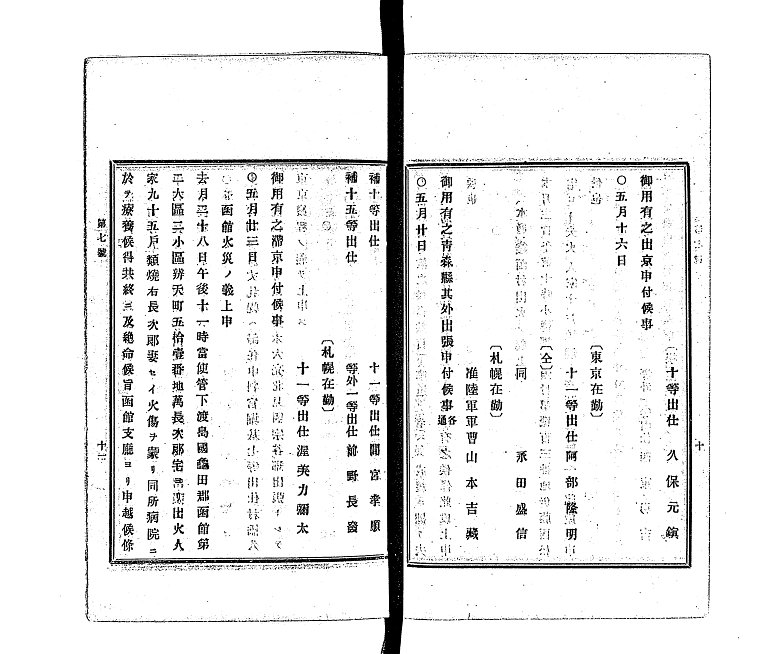 十等出仕 久保元鎮
御用有之出京申付候事
〇五月十六日
〔東京在勤〕
十一等出仕 阿部隆明
〔仝〕
同 永田盛信
〔札幌在勤〕
准陸軍軍曹 山本吉藏
御用有之青森縣其外出張申付候事 各通
〇五月廿日
十
補十等出仕 十一等出仕 間宮孝順
補十五等出仕 等外一等出仕 前野長發
〔札幌在勤〕
十一等出仕 渥美力彌太
御用有之滯京申付候事
〇五月廿三日
函館火災ノ義上申
去月二十八日午後十一時當使管下渡島國龜田郡函館第
二大區二小區辨天町五拾壹番地萬長次郎宅ヨリ出火人
家九十五戶類燒右長次郎妻セイ火傷ヲ蒙リ同所病院ニ
於テ療養候得共終ニ及絶命候旨函館支廳ヨリ申越候條
第七號
十二